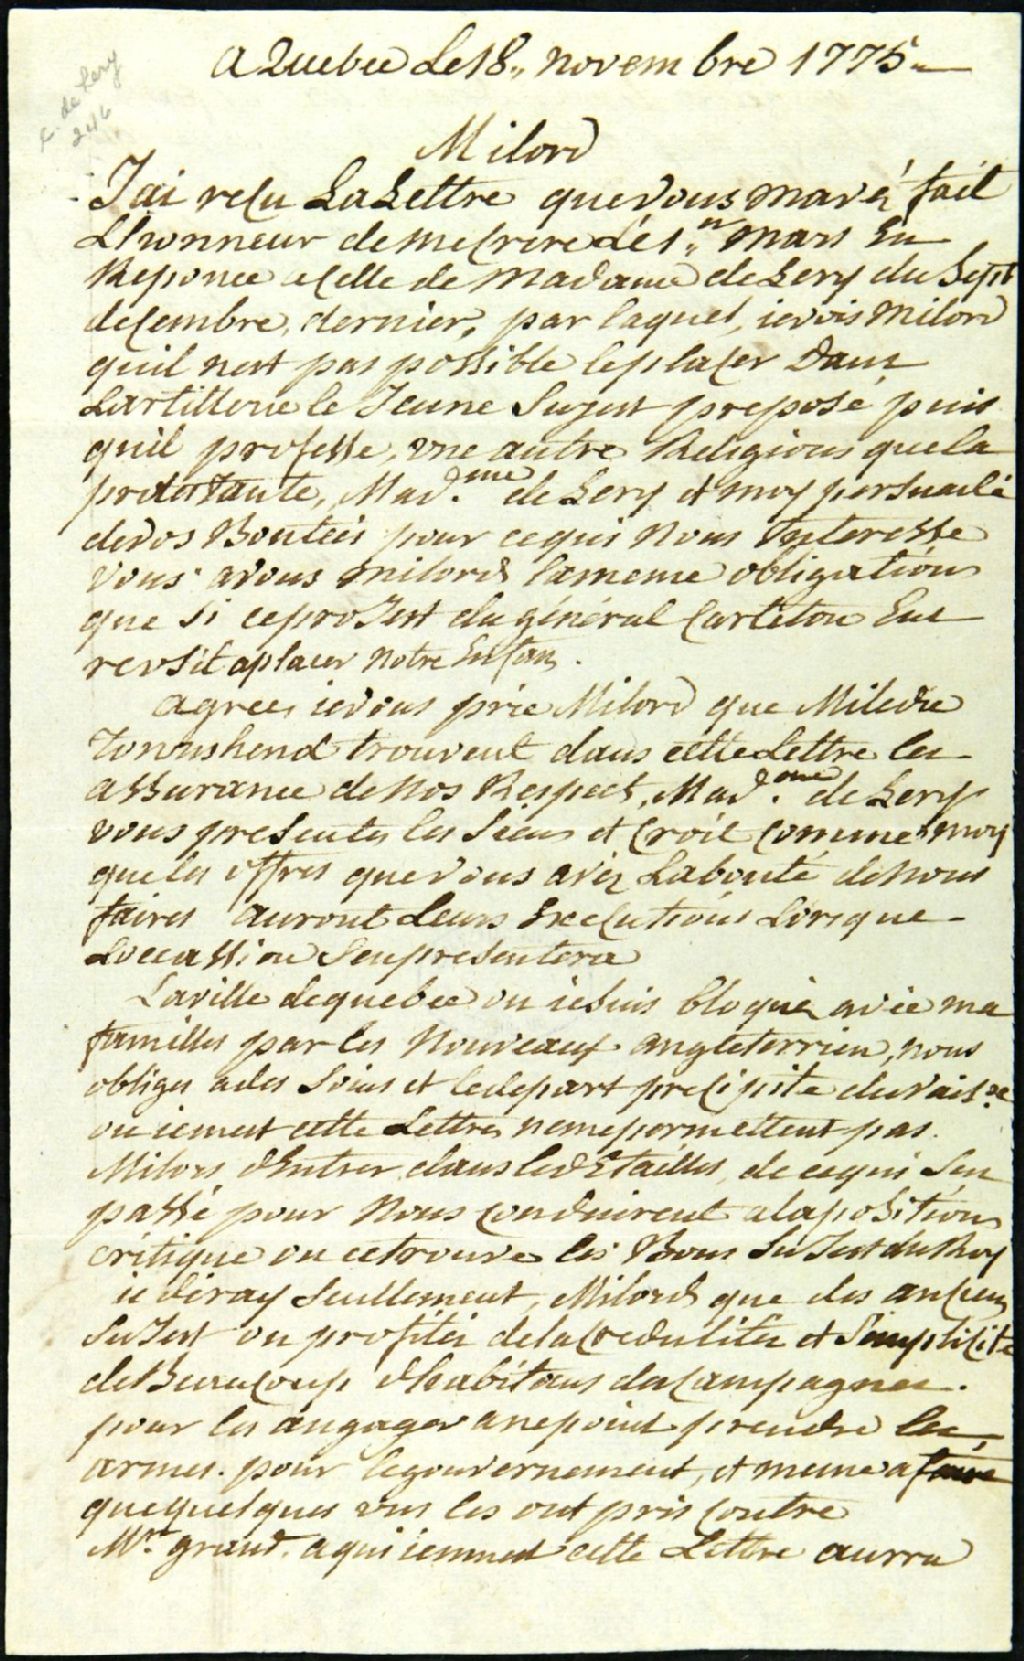 A Quebec Le 18,, novembre 1775
C. de Lery
246
Milord
Jai recu La Lettre que vous mavéz fait
Lhonneur de mecrire Le 1.er Mars En
Reponce a celle de Madame de Lery du Sept
decembre, dernier, par laquel, ie vois Milord
quil nest pas possible le placer Dans
Lartillerie le Jeune Sujest proposé puis
quil professe, une autre Religions que la
protestante, Mad.me de Lery et moy persuadé
de vos Boutéis pour ce qui Nous Interesse
vous avons milord la meme obligations
que si ce proJest du général Carleton Eut
reusit a placer notre Enfan.
agrées, ie vous prie Milord que Miledie
Townshend trouvent dans cette Lettre les
assurance de Nos Respect, Mad.me de Lery
vous presentes les Siens et croit comme moy
que les offres que vous avéz La bonté de Nous
faires auront Leurs Execlutions Lorsque
Loccassion Senpresentera
La ville de quebec ou ie Suis bloquéz avec ma
familles par les Nouveaux angleterrien, nous
obliges a des Soins et le depart precipité du vais.au
ou ie mest cette Lettres ne me permettent pas.
Milors dEntrer dans les dEtailles, de ce qui Sen
passé pour Nous conduirent a la positions
critique ou ce trouve les Bons SuJest du Roy
ie diray Seullement, Milord que des anciens
SuJest on profitéz de la credulitée et Simplicite
de Beaucoup dhabitans des Campagnes.
pour les angager a ne point prendre les
armes. pour le gouvernement, et meme a
que quelques uns les ont pris contre
Mr. grand. a qui ie remest cette Lettre aurra